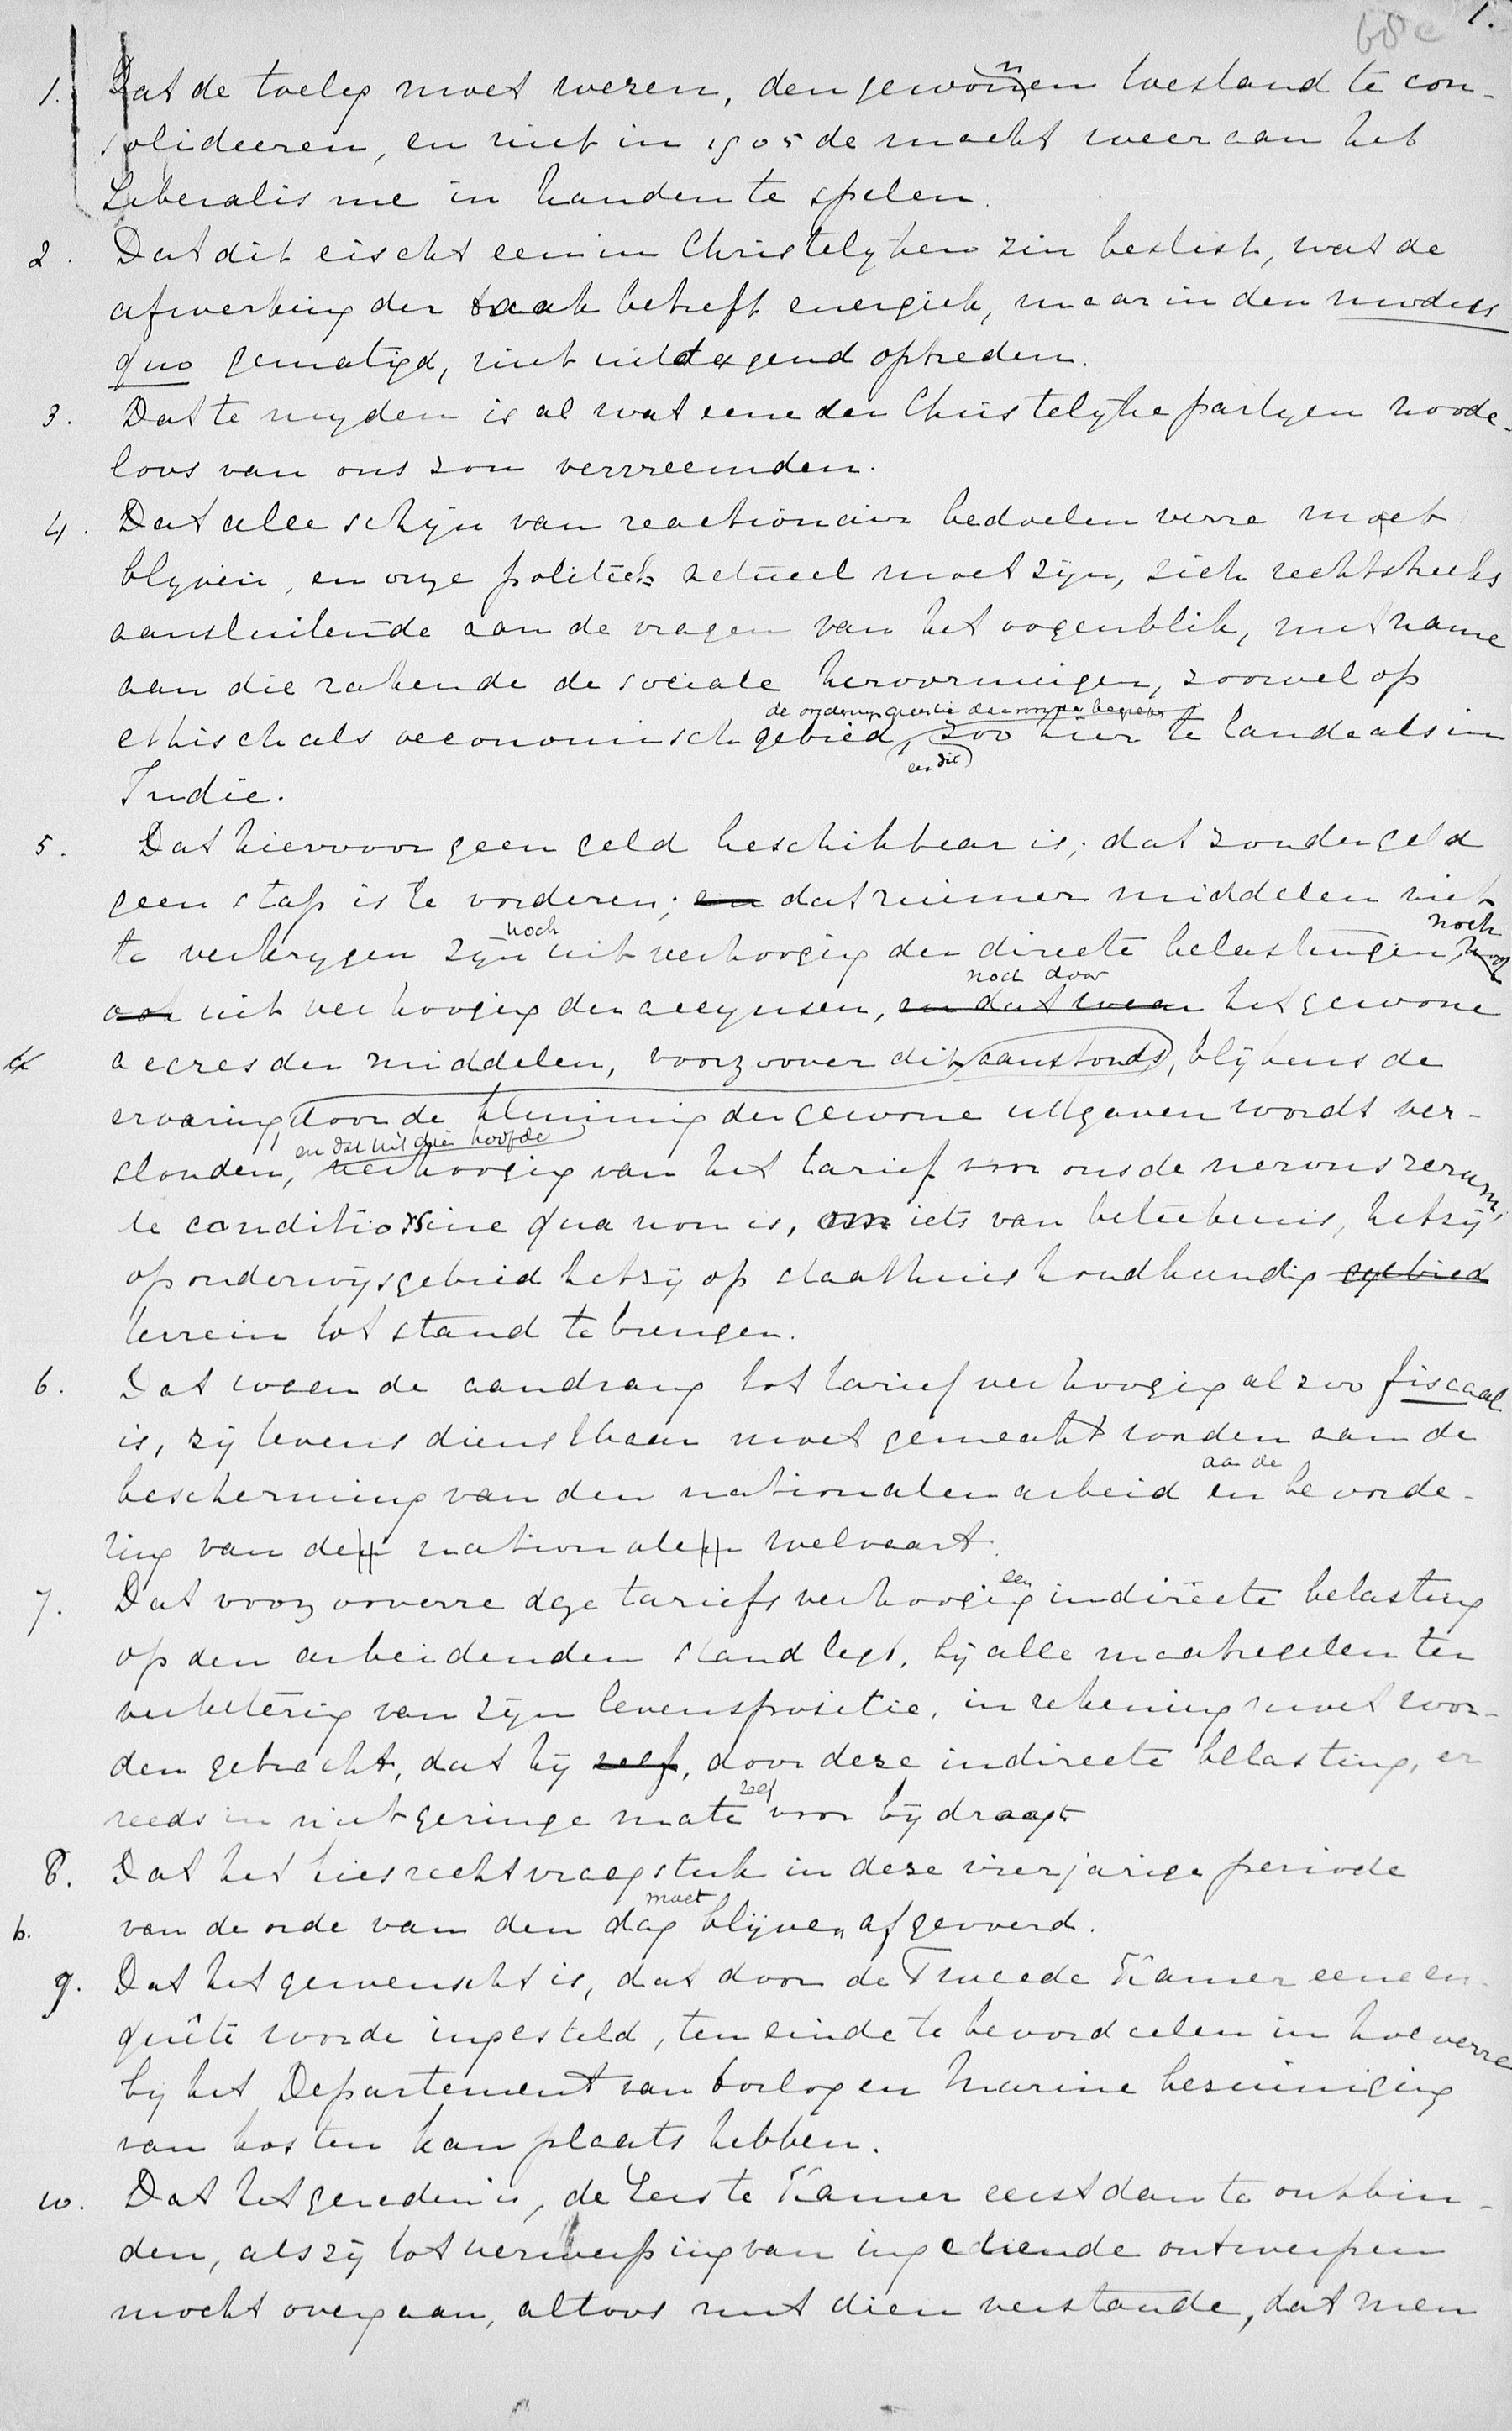 68c 1.
1. Dat de toeleg moet wezen, den gewonnen toestand te con-
solideeren, en niet in 1905 de macht weer aan het
Liberalisme in handen te spelen.
2. Dat dit eischt een in Christelyken zin beslist, wat de
afwerking der taak betreft energiek, maar in den modus
quo gematigd, niet uitdagend optreden.
3. Dat te myden is al wat eene der Christelyke partyen noode-
loos van ons zou vervreemden.
4. Dat alle schijn van reactionair bedoelen verre moet
blyven, en onze politiek actueel moet zijn, zich rechtstreeks
aansluitende aan de vragen van het oogenblik, met name
aan die rakende de sociale hervormingen, zoowel op
de onderwijs quaestie daaronder begrepen
ethisch als oeconomisch gebied, en dit zoo hier te lande als in
Indie.
5. Dat hiervoor geen geld beschikbaar is; dat zonder geld
geen stap is te vorderen; en dat ruimer middelen niet
te verkrygen zijn noch uit verhooging der directe belastingen, noch
ook uit verhooging der accynsen, en dat noch door het gewone
accres der middelen, voorzoover dit aanstonds, blijkens de
ervaring, door de klimming der gewone uitgaven wordt ver-
slonden, en dat uit dien hoofde verhooging van het tarief voor ons de nervus rerum,
de conditio sine qua non is, om iets van beteekenis, hetzij
op onderwijsgebied hetzij op staathuishoudkundig gebied
terrein tot stand te brengen.
6. Dat waar de aandrang tot tariefverhooging alzoo fiscaal
is, zij tevens dienstbaar moet gemaakt worden aan de
bescherming van den nationalen arbeid en aan de bevorde-
ring van den nationalen welvaart.
7. Dat voorzooverre deze tariefsverhooging een indirecte belasting
op den arbeidenden stand legt, bij alle maatregelen ter
verbetering van zijn levenspositie, in rekening moet wor-
den gebracht, dat hij zelf, door deze indirecte belasting, er
reeds in niet geringe mate zelf voor bijdraagt
8. Dat het kiesrechtvraagstuk in deze vierjarige periode
b. van de orde van den dag moet blijven afgevoerd.
9. Dat het gewenscht is, dat door de Tweede Kamer eene en-
quête worde ingesteld, ten einde te beoordeelen in hoeverre
by het Departement van Oorlog en Marine bezuiniging
van kosten kan plaats hebben.
10. Dat het geraden is, de Eerste Kamer eerst dan te ontbin-
den, als zij tot verwerping van ingediende ontwerpen
mocht overgaan, altoos met dien verstande, dat men